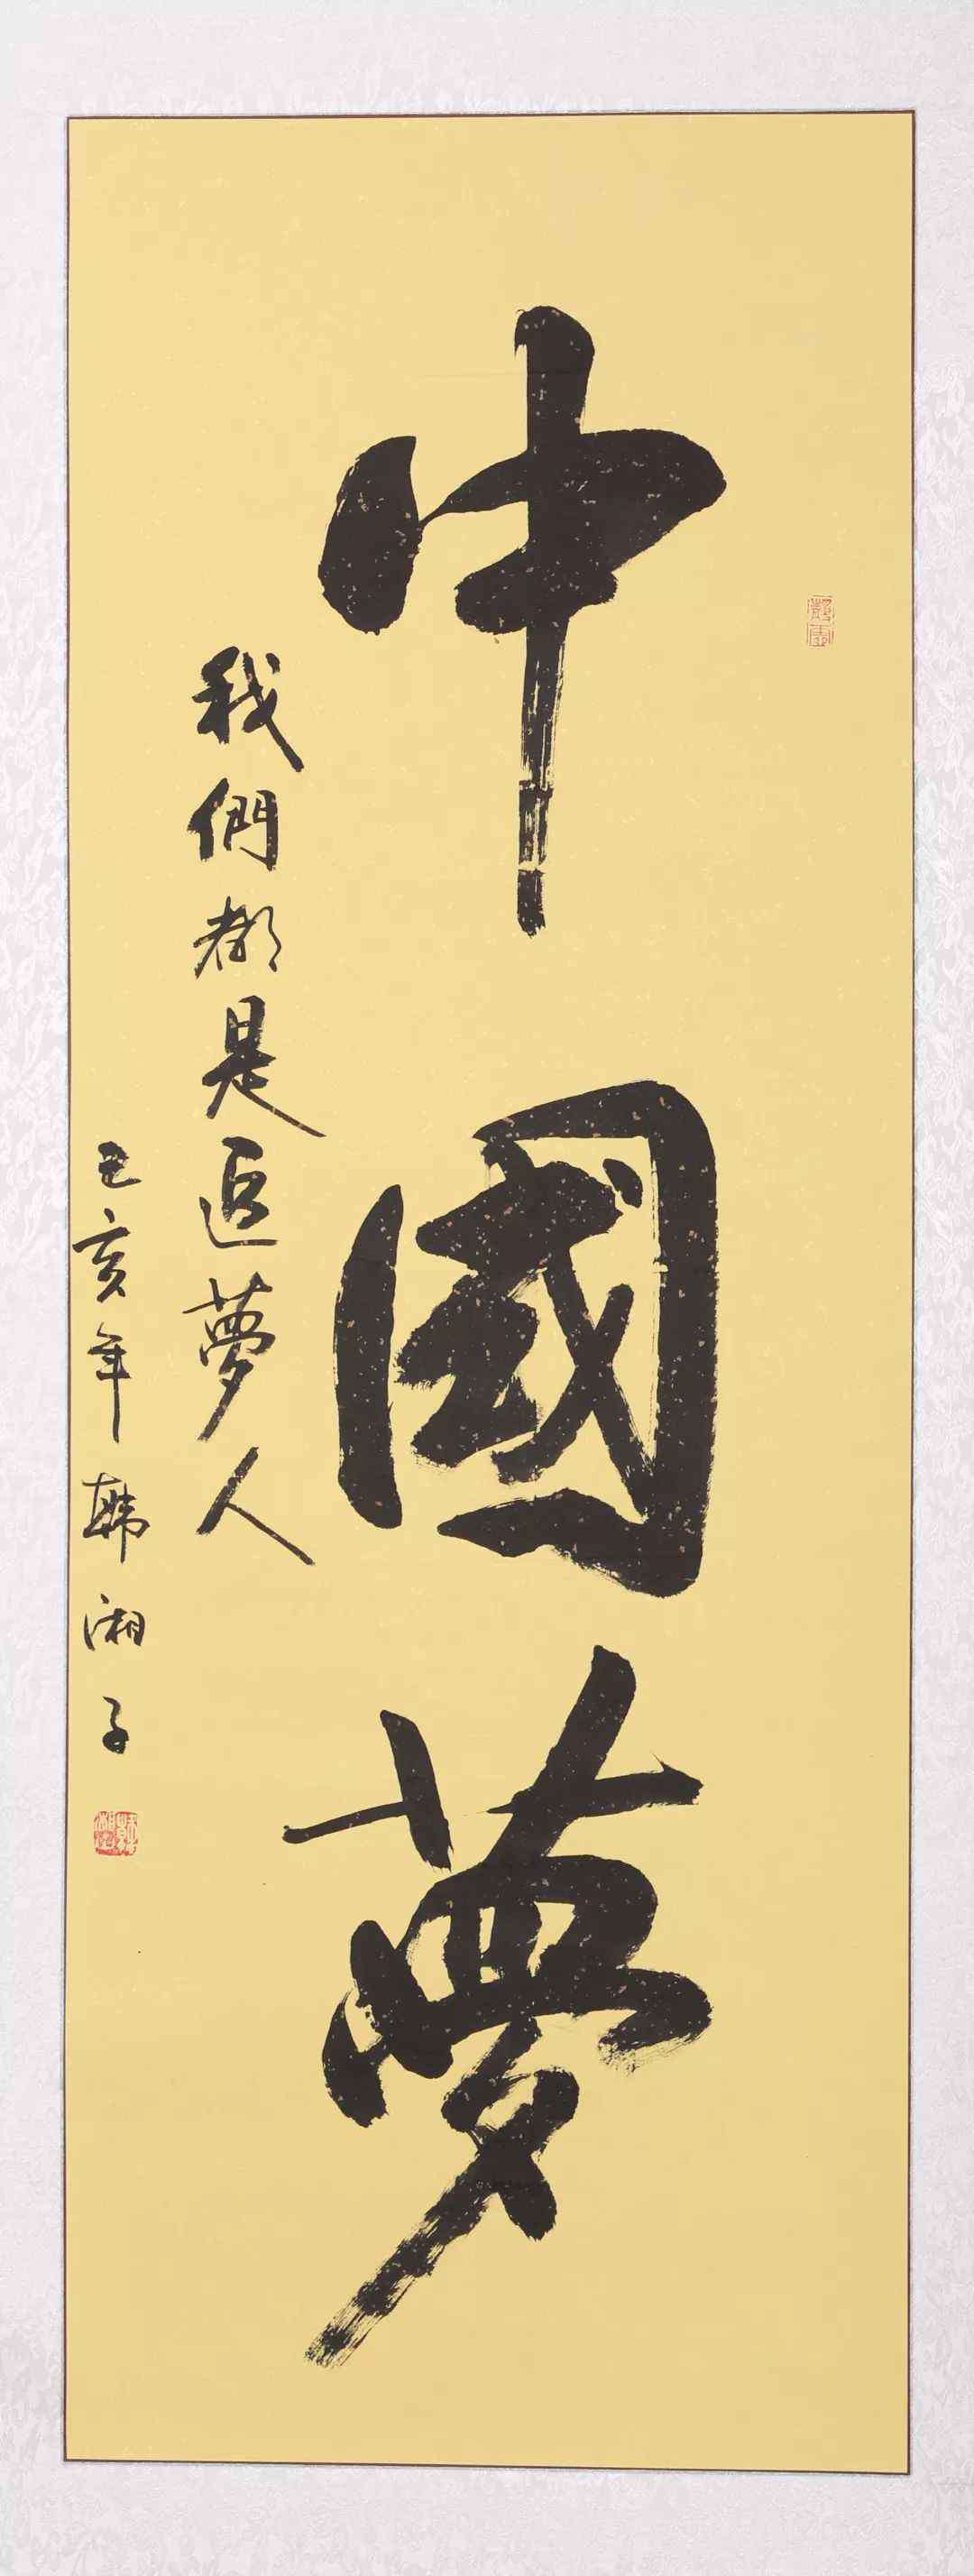 中國夢
我們都是追夢人
己亥年韩湘子